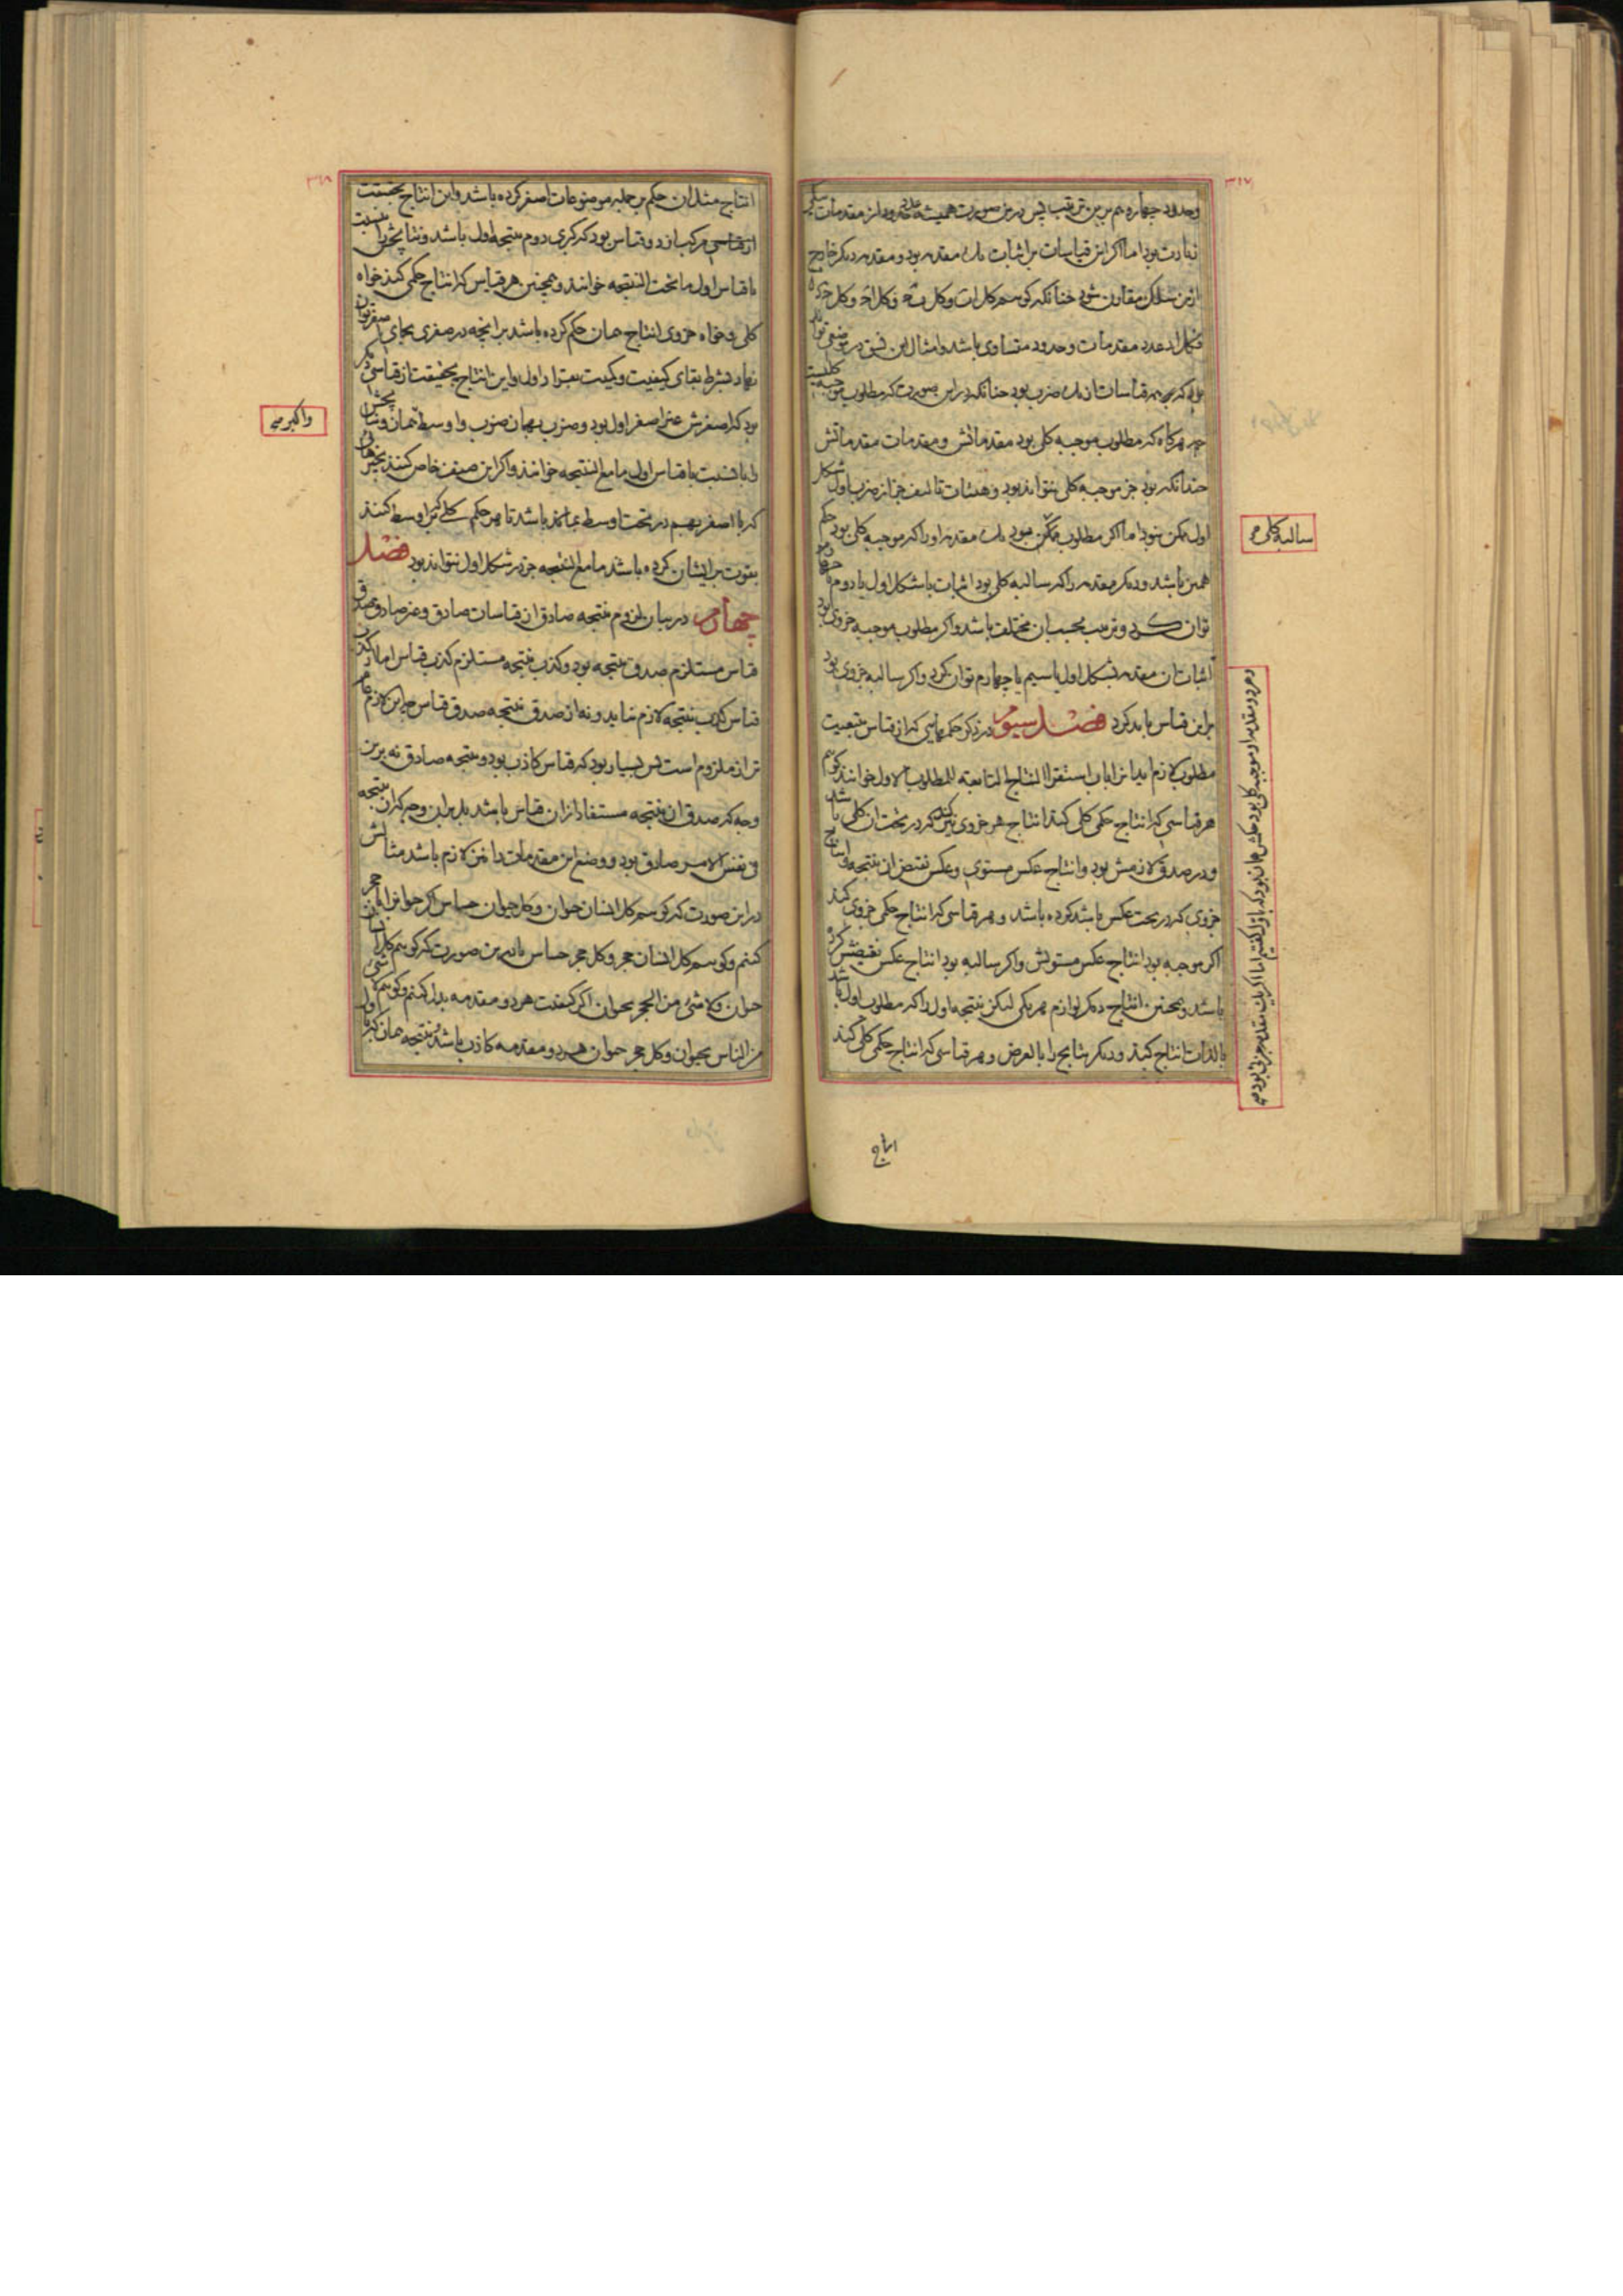 ۳۱۷
وحدود چهاره هم برین ترتیب پس درین صورت همیشه عدد حدود از مقدمات بیکی
زیادت بود اما اگر این قیاسات بر اثبات یک مقدمه بود و مقدمه دیگر خارج
ازین سلک مقارن شود چنانکه گوییم کل ا ب وکل
فکل ا د عدد مقدمات وحدود متساوی باشد وامثال این فرق در موضعی تواند
بود که همه قیاسات از یک ضرب بود چنانکه در این صورت که مطلوب موجبه کلیست
چه هرگاه که مطلوب موجبه کلی بود مقدماتش ومقدمات مقدماتش
چندانکه بود جز موجبه کلی نتواند بود وهیئات تالیف جز از ضرب اول شکل
اول ممکن نبود اما اگر مطلوب ممکن نبود یک مقدمه او را که موجبه کلی بود حکم
همین باشد ودیگر مقدمه را که سالبه کلی بود اثبات باشکل اول یا دوم
توان کرد و ترتیب بحسب آن مختلف باشد واگر مطلوب موجبه جزوی بود
اثبات آن مقدمه بشکل اول یا سیم یا چهارم توان کرد واگر سالبه جزوی بود
برین قیاس باید کرد فصل سیوم در ذکر حکمهایی که از قیاس بتبعیت
مطلوب لازم آید این را باب استقرار النتایج التابعة للمطلوب الاول خوانند گوییم
هر قیاسی که انتاج حکمی کلی کند انتاج هر جزوی نیز کند که در تحت آن کلی باشد
ودر صدق لازمش بود وانتاج عکس مستوی وعکس نقیض آن نتیجه وانتاج
جزوی که در تحت عکس باشد کرده باشد وهر قیاسی که انتاج حکمی جزوی کند
اگر موجبه بود انتاج عکس مستویش واگر سالبه بود انتاج عکس نقیضش کرده
باشد وهمچنین انتاج دیگر لوازم هریکی لیکن نتیجه اول را که مطلوب اول باشد
بالذات انتاج کند ودیگر نتایج را بالعرض وهر قیاسی که انتاج حکمی کلی کند
سالبه کلی
وهر دو مقدمه او موجبه کلی بود حکمش همان بود که باول گفتیم اما اگر یک مقدمه جزئی بود
انتاج
۳۱۸
انتاج مثل آن حکم بر جمله موضوعات اصغر کرده باشد واین انتاج بحقیقت
از قیاسی مرکب از دو قیاس بود که کبری دوم نتیجه اول باشد ونتایجش را بنسبت
با قیاس اول ما تحت النتیجه خوانند وهمچنین هر قیاس که انتاج حکمی کند خواه
کلی وخواه جزوی انتاج همان حکم کرده باشد بر آنچه در صغری بجای اصغر توان
نهاد بشرط بقای کیفیت وکمیت بقرار اول واین انتاج بحقیقت از قیاسی دیگر
بود که اصغرش غیر اصغر اول بود وضرب همان ضرب واوسط همان ونتایجش
را با نسبت با قیاس اول ما مع النتیجه خوانند واگر این صنف خاص کنند بچیزهائی
که با اصغر بهم در تحت اوسط یا مانند باشد تا هر حکم کلی که بر اوسط کنند
بقوت بر ایشان کرده باشد ما مع النتیجه جز در شکل اول نتواند بود فصل
چهارم در بیان لزوم نتیجه صادق از قیاسات صادق وغیر صادق صدق
قیاس مستلزم صدق نتیجه بود وکذب نتیجه مستلزم کذب قیاس اما از کذب
قیاس کذب نتیجه لازم نیاید ونه از صدق نتیجه صدق قیاس چه این لازم عام
تر از ملزوم است پس بسیار بود که قیاس کاذب بود ونتیجه صادق نه برین
وجه که صدق آن نتیجه مستفاد از آن قیاس باشد بل بر این وجه که آن نتیجه
فی نفس الامر صادق بود ووضع این مقدمات را نیز لازم باشد مثالش
در این صورت که گوییم کل انسان حیوان وکل حیوان حساس اگر حیوان را بحجر
کنیم وگوییم کل انسان حجر وکل حجر حساس یا در این صورت که گوییم کل انسان
حیوان ولا شیء من الحجر بحیوان اگر کیفیت هر دو مقدمه بدل کنیم وگوییم لا شیء
من الناس بحیوان وکل حجر حیوان هر دو مقدمه کاذب باشد ونتیجه همان که باول
واکبر